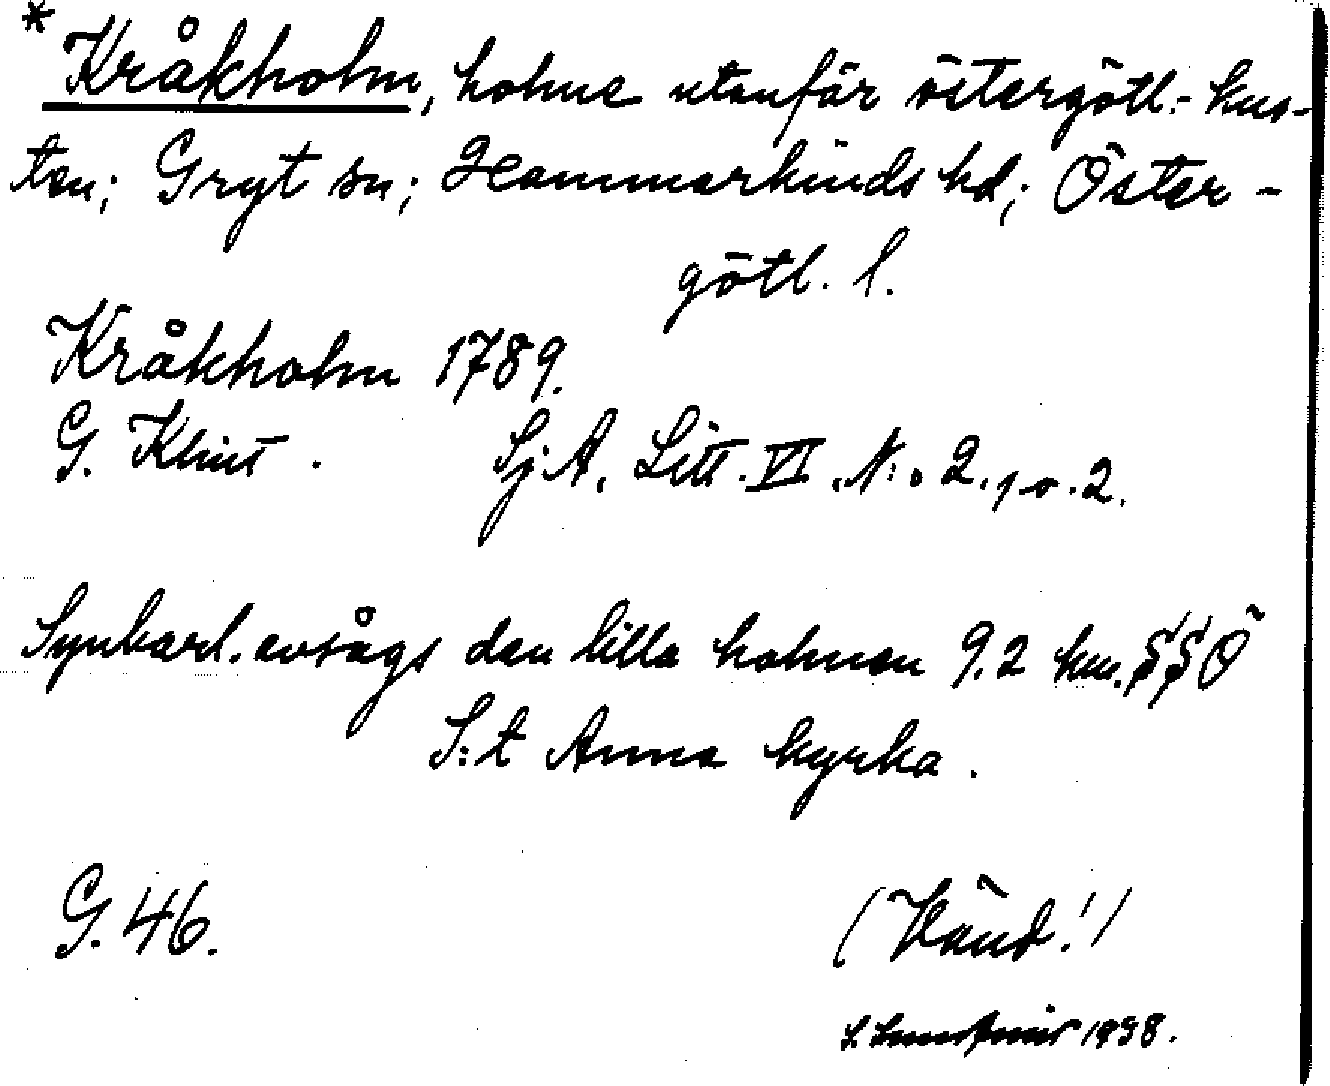 * Kråkholm, holme utanför östergötl.- kus-
ten; Gryt sn; Hammarkinds hd; Öster-
götl. l.
Kråkholm 1789.
G. Klint. SjA. Litt. VI. N:o 2. 1 o. 2.
Synbarl. avsågs den lilla holmen 9.2 km. SSÖ
S:t Anna kyrka.
G. 46.
(Vänd!)
1938.